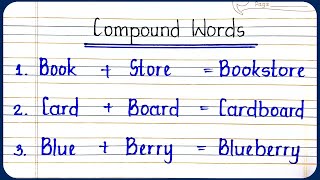 Compound Words
1. Book + Store = Bookstore
2. Card + Board = Cardboard
3. Blue + Berry = Blueberry